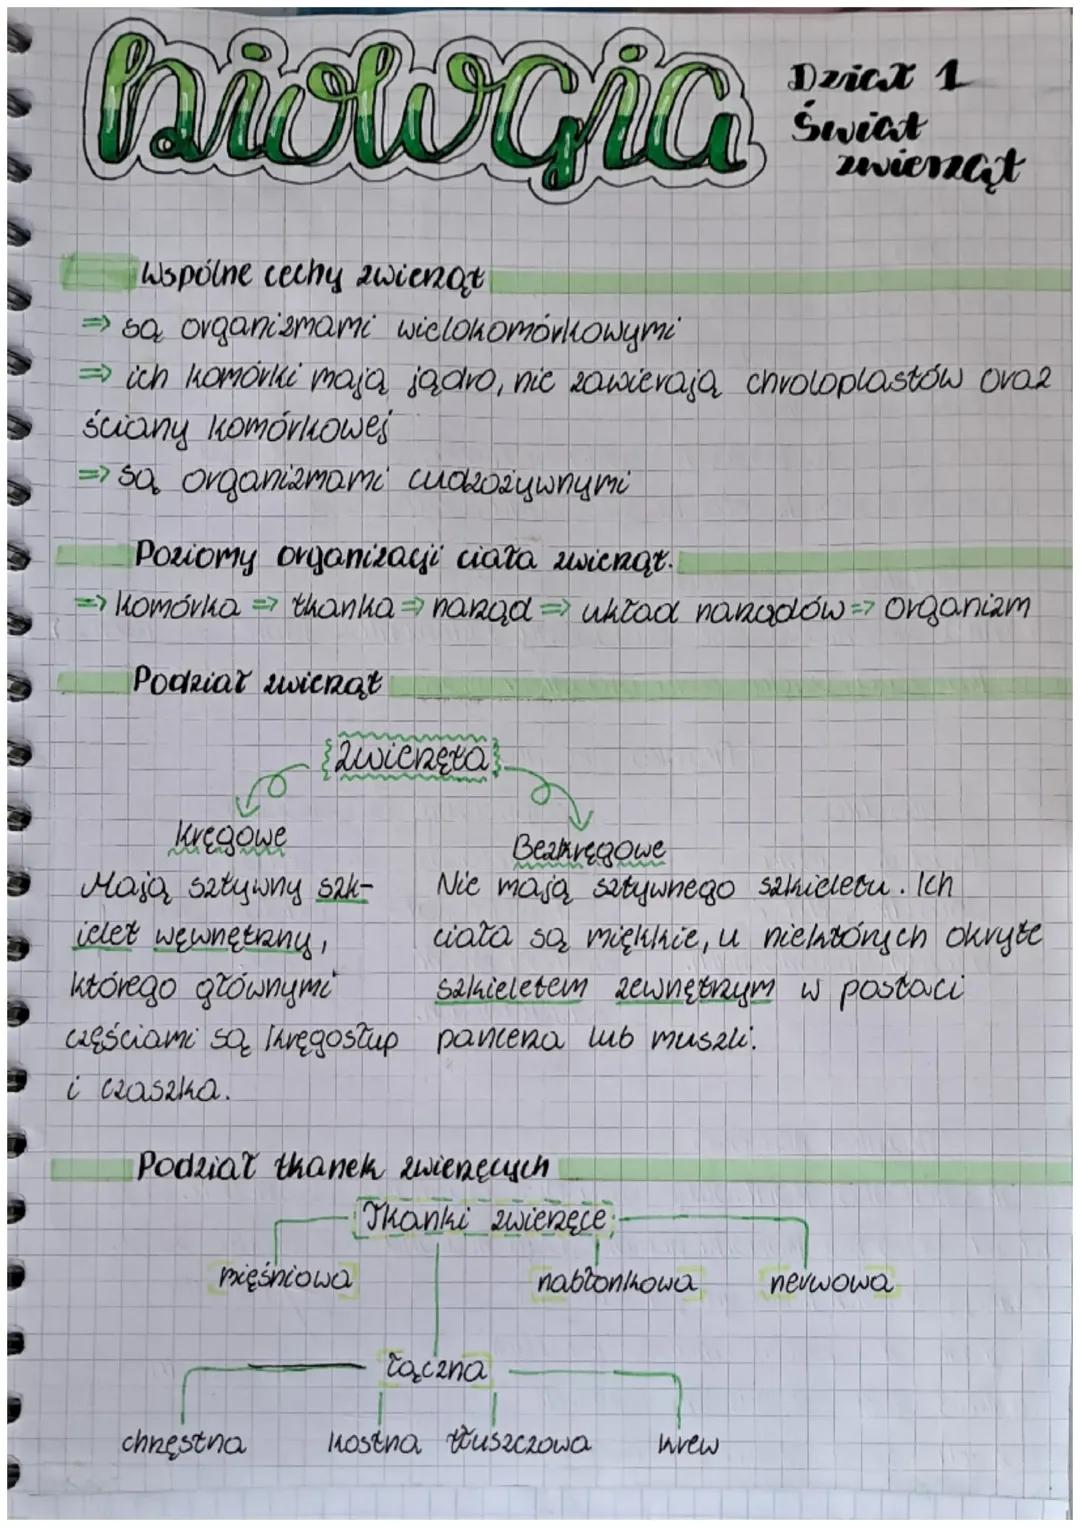 biologia
Dział 1
Świat
zwierząt
Wspólne cechy zwierząt
=> są organizmami wielokomórkowymi
=> ich komórki mają jądro, nie zawierają chroloplastów oraz
ściany komórkowej
=> są organizmami cudzożywnymi
Poziomy organizacji ciała zwierząt.
=> komórka => tkanka => narząd => układ narządów => organizm
Podział zwierząt
zwierzęta
Kręgowe
Bezkręgowe
Mają sztywny szk-
ielet wewnętrzny,
którego głównymi
częściami są kręgosłup
i czaszka.
Nie mają sztywnego szkieletu. Ich
ciała są miękkie, u niektórych okryte
szkieletem zewnętrzym w postaci
pancerza lub muszli.
Podział tkanek zwierzęcych
Tkanki zwierzęce
mięśniowa nabłonkowa nerwowa
łączna
chrzęstna kostna tłuszczowa krew